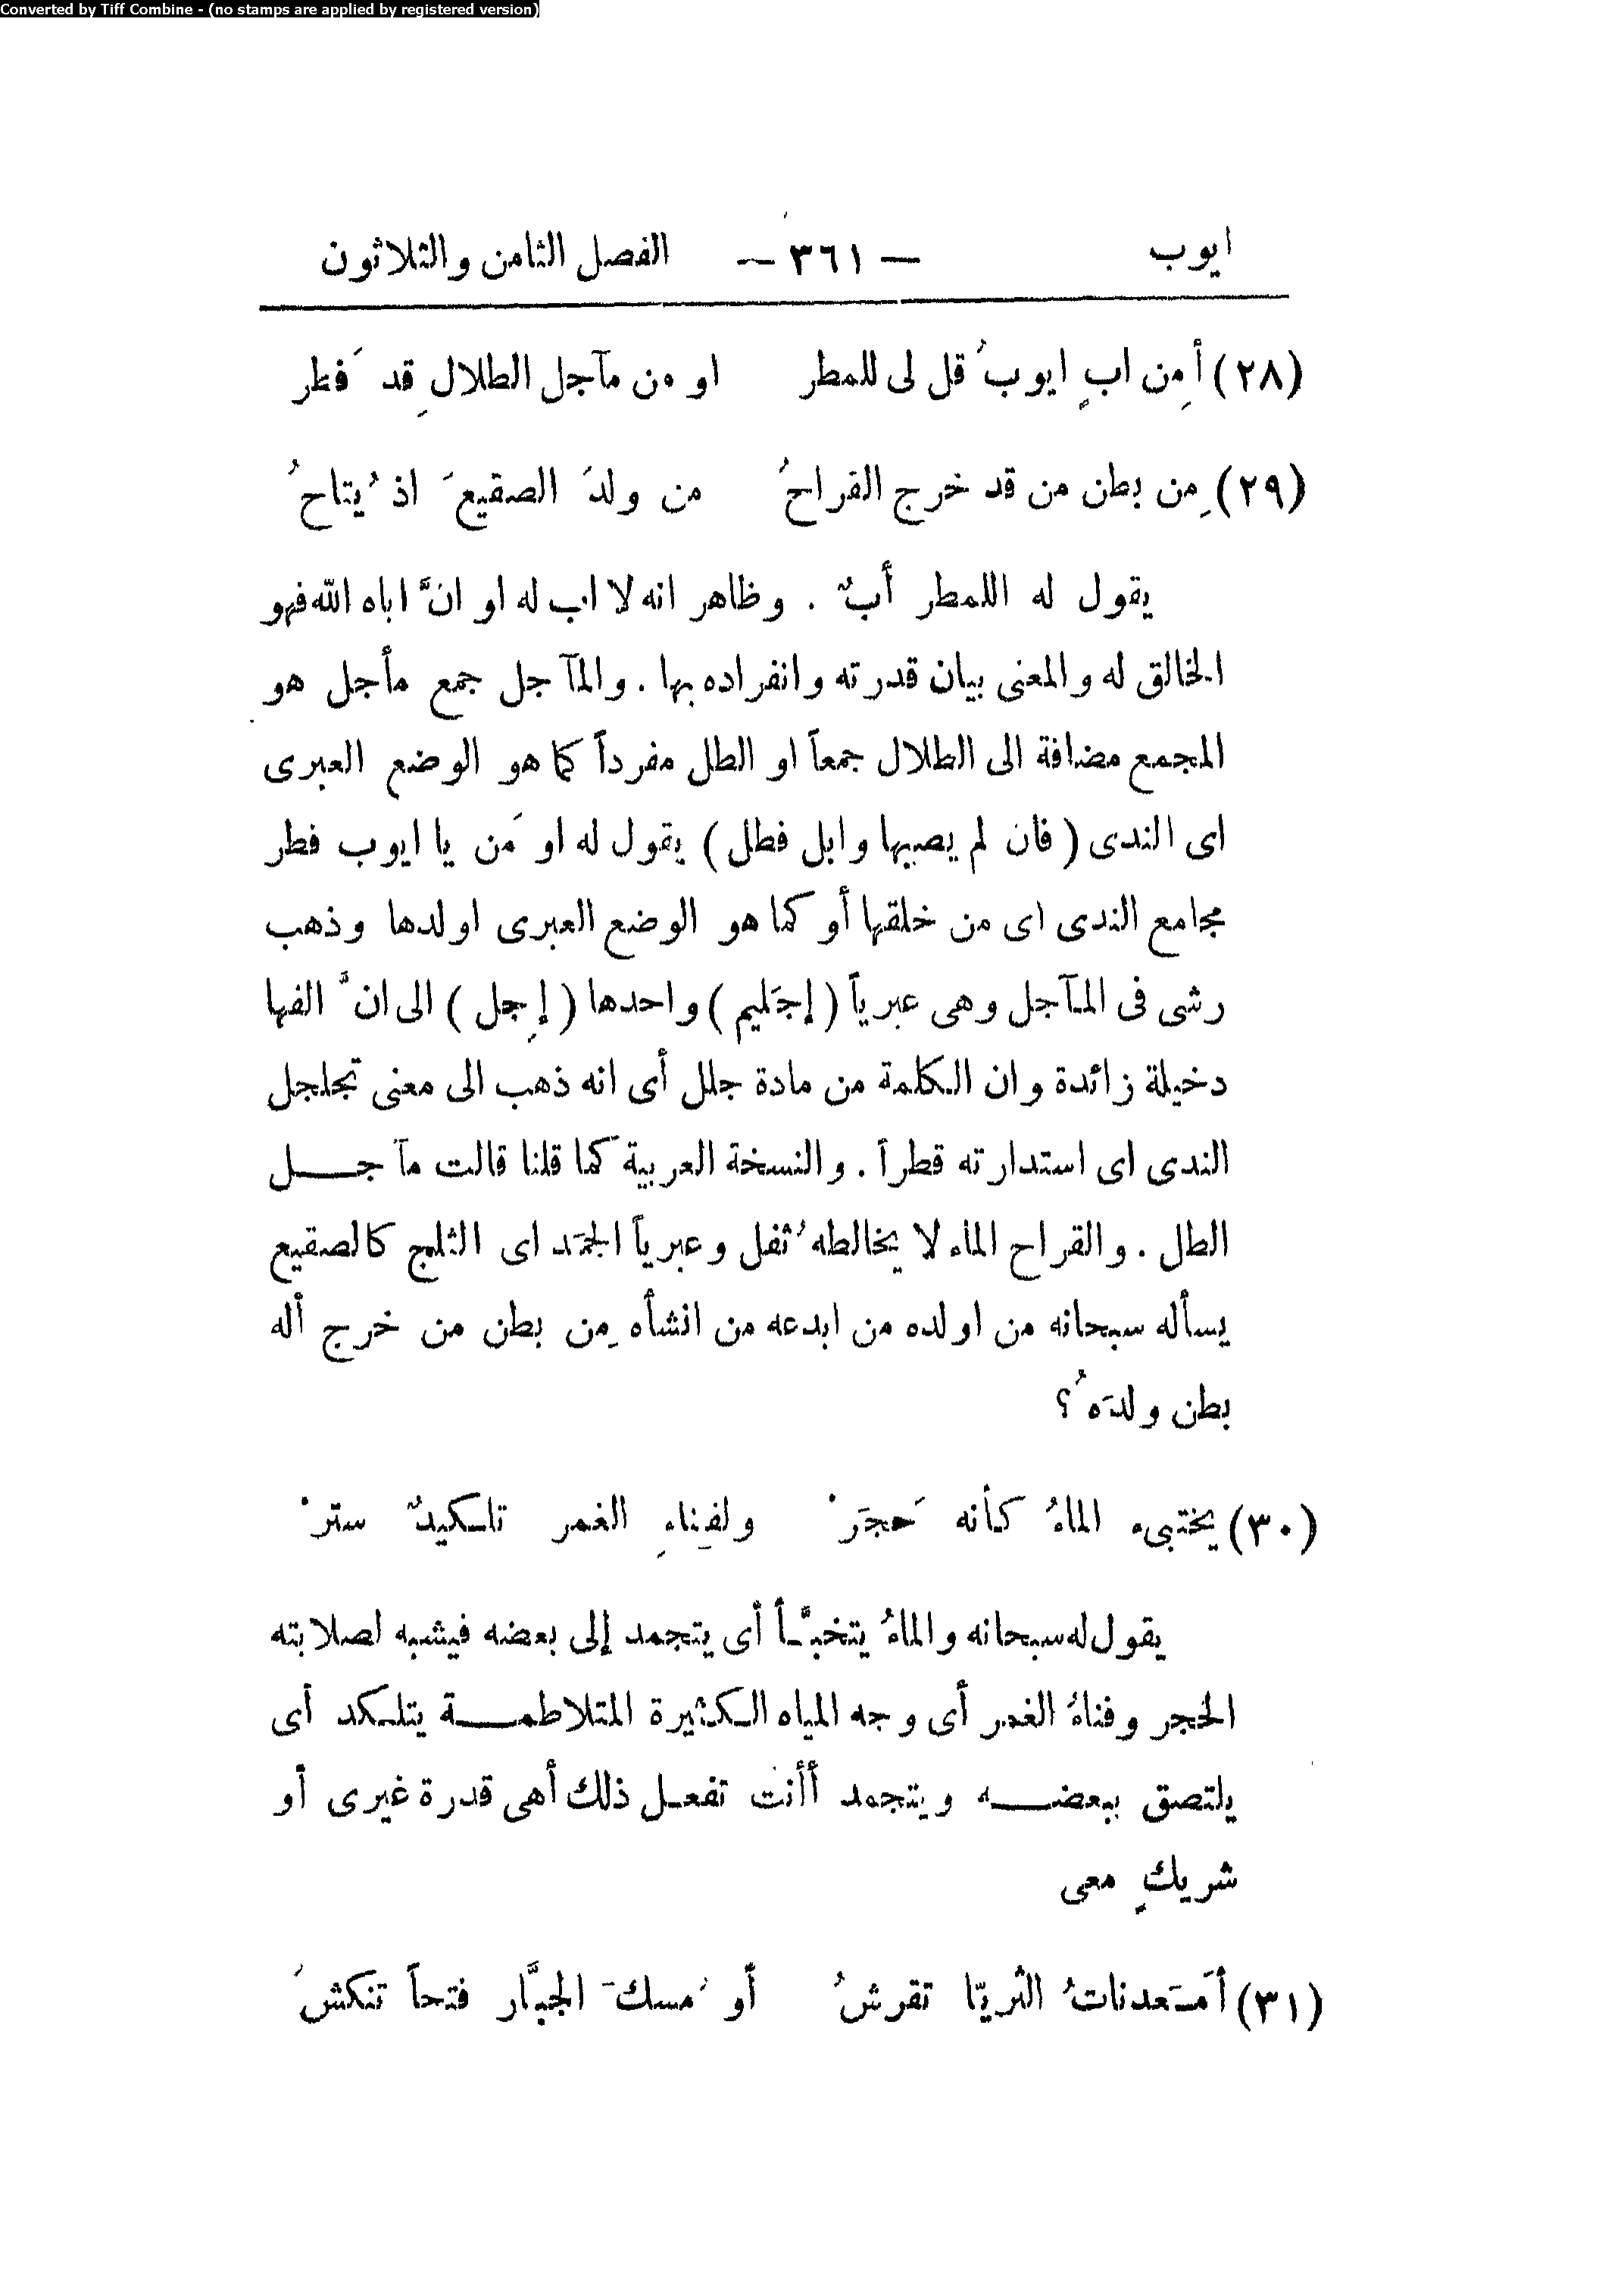 Converted by Tiff Combine - (no stamps are applied by registered version)
ايوب — ٣٦١ — الفصل الثامن والثلاثون
(٢٨) أمِن ابٍ ايوبُ قل لى للمطر او من مآجل الطلالِ قد فَطر
(٢٩) مِن بطن من قد خرج القراحُ من ولدَ الصقيعَ اذ يُتاحُ
يقول له اللمطر أبٌ . وظاهر انه لا اب له او انَّ اباه الله فهو
الخالق له والمعنى بيان قدرته وانفراده بها . والمآجل جمع مأجل هو
المجمع مضافة الى الطلال جمعاً او الطل مفرداً كما هو الوضع العبرى
اى الندى ( فان لم يصبها وابل فطل ) يقول له او مَن يا ايوب فطر
مجامع الندى اى من خلقها أو كما هو الوضع العبرى اولدها وذهب
رشى فى المآجل وهى عبرياً ( إجَليم ) واحدها ( إجِل ) الى انَّ الفها
دخيلة زائدة وان الكلمة من مادة جلل أى انه ذهب الى معنى تجلجل
الندى اى استدارته قطراً . والنسخة العربية كما قلنا قالت مآجل
الطل . والقراح الماء لا يخالطه ثُفل وعبرياً الجمَد اى الثلج كالصقيع
يسأله سبحانه من اولده من ابدعه من انشأه مِن بطن من خرج أله
بطن ولدَهُ ؟
(٣٠) يختبىء الماءُ كأنه حَجَرْ ولفِناءِ الغمر تلكيدٌ سترْ
يقول له سبحانه والماءُ يتخبَّأ أى يتجمد إلى بعضه فيشبه لصلابته
الحجر وفناءُ الغمر أى وجه المياه الكثيرة المتلاطمة يتلكد أى
يلتصق ببعضه ويتجمد أأنت تفعل ذلك أهى قدرة غيرى أو
شريكٍ معى
(٣١) أمَعدناتُ الثريّا تقرشُ أو مُسكَ الجبَّار فتحاً تنكشُ